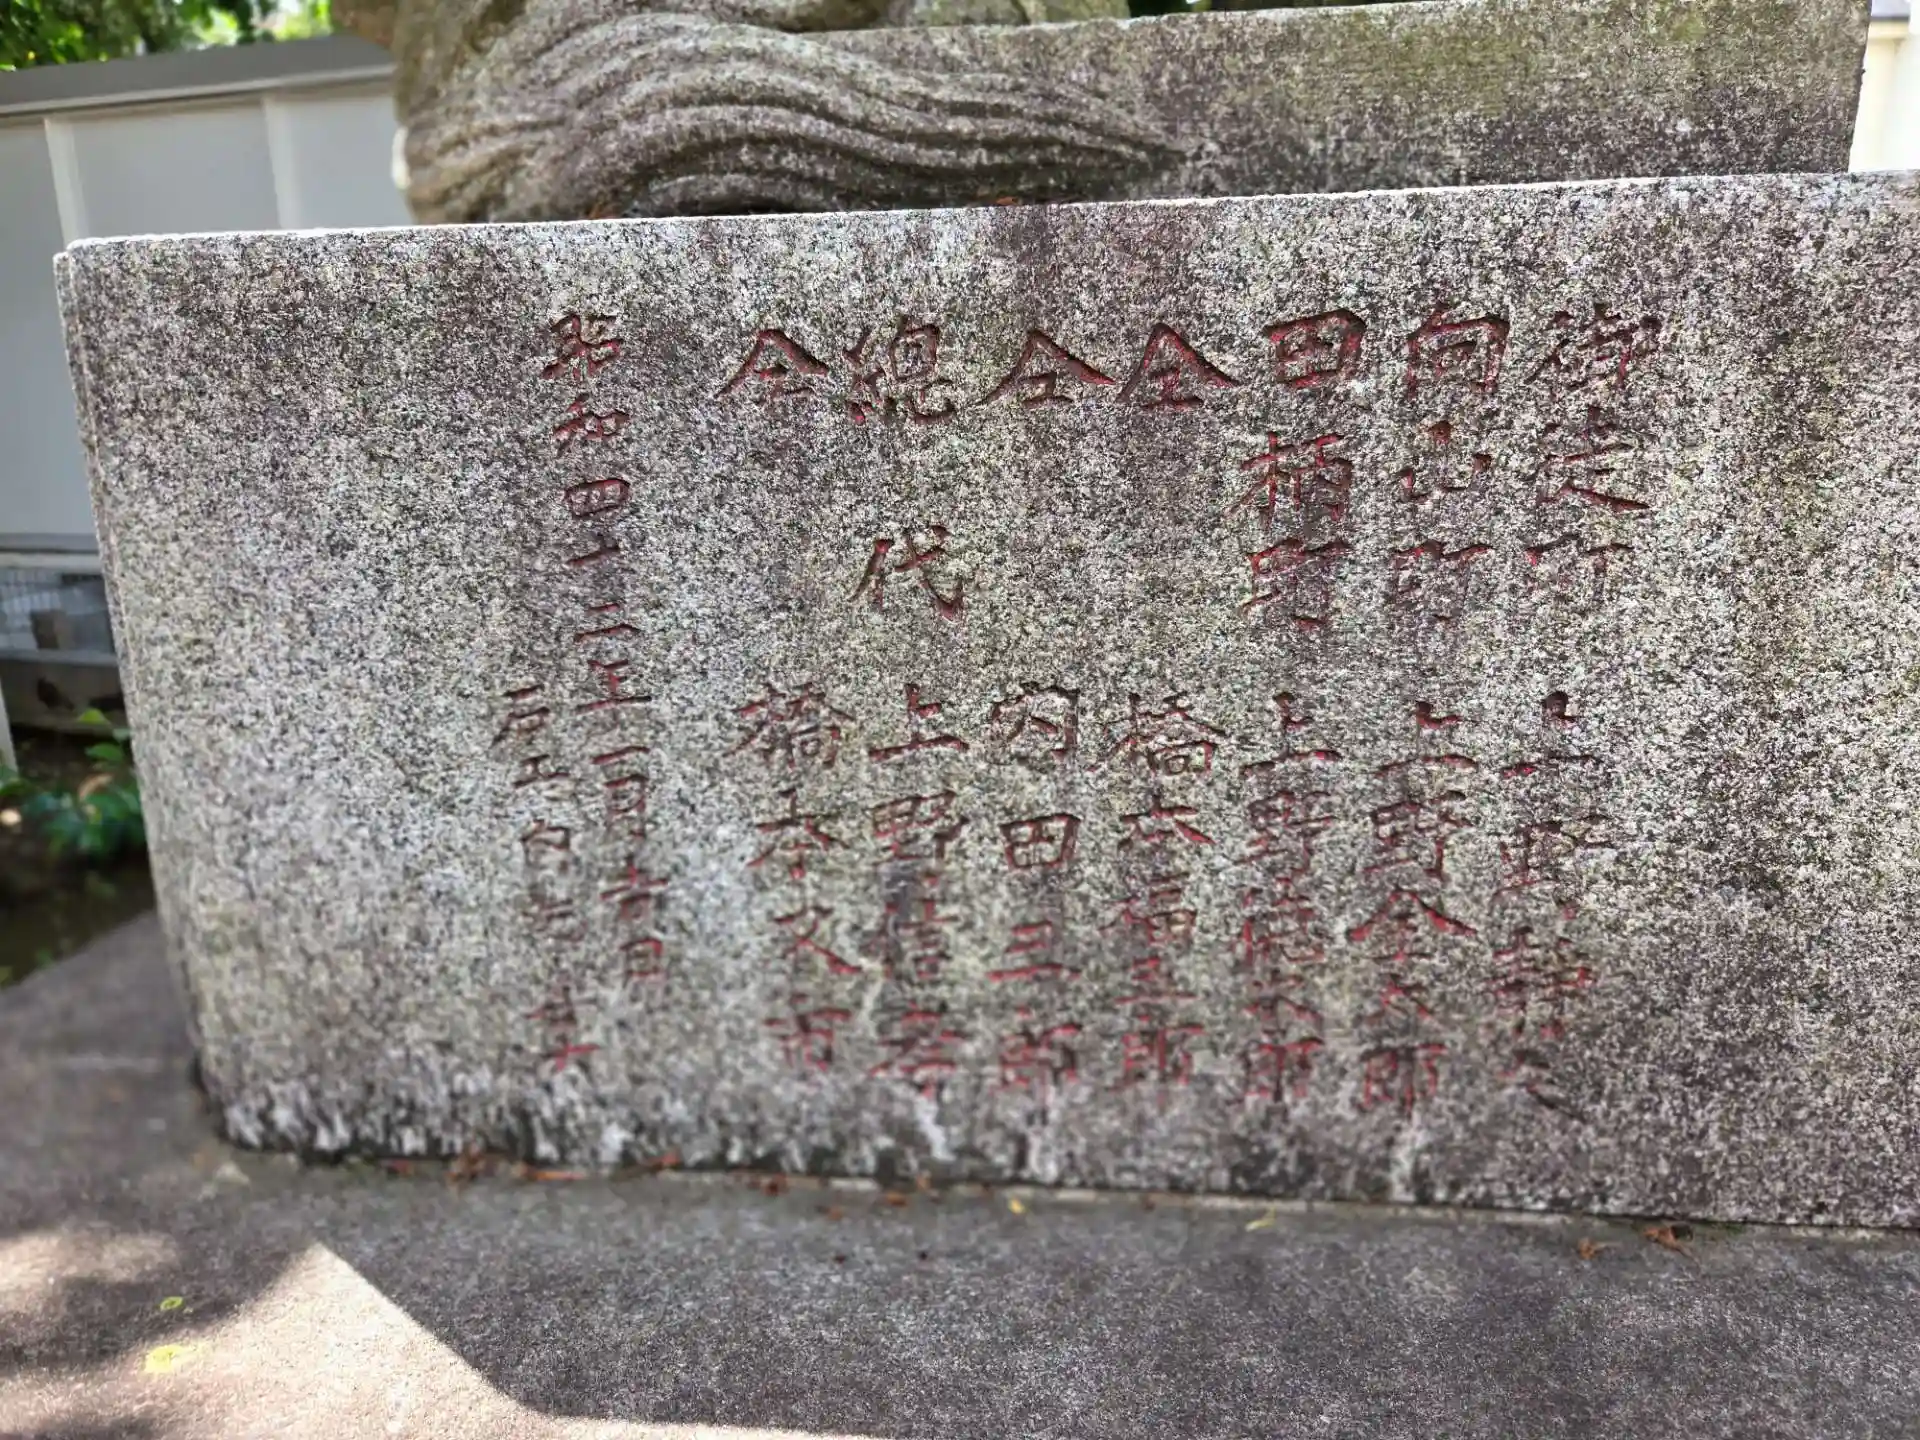 御徒町 上野
向山町 上野金太郎
田柄町 上野徳太郎
仝 橋本福五郎
仝 内田三郎
總代 上野信孝
仝 橋本又市
昭和四十二年一月吉日